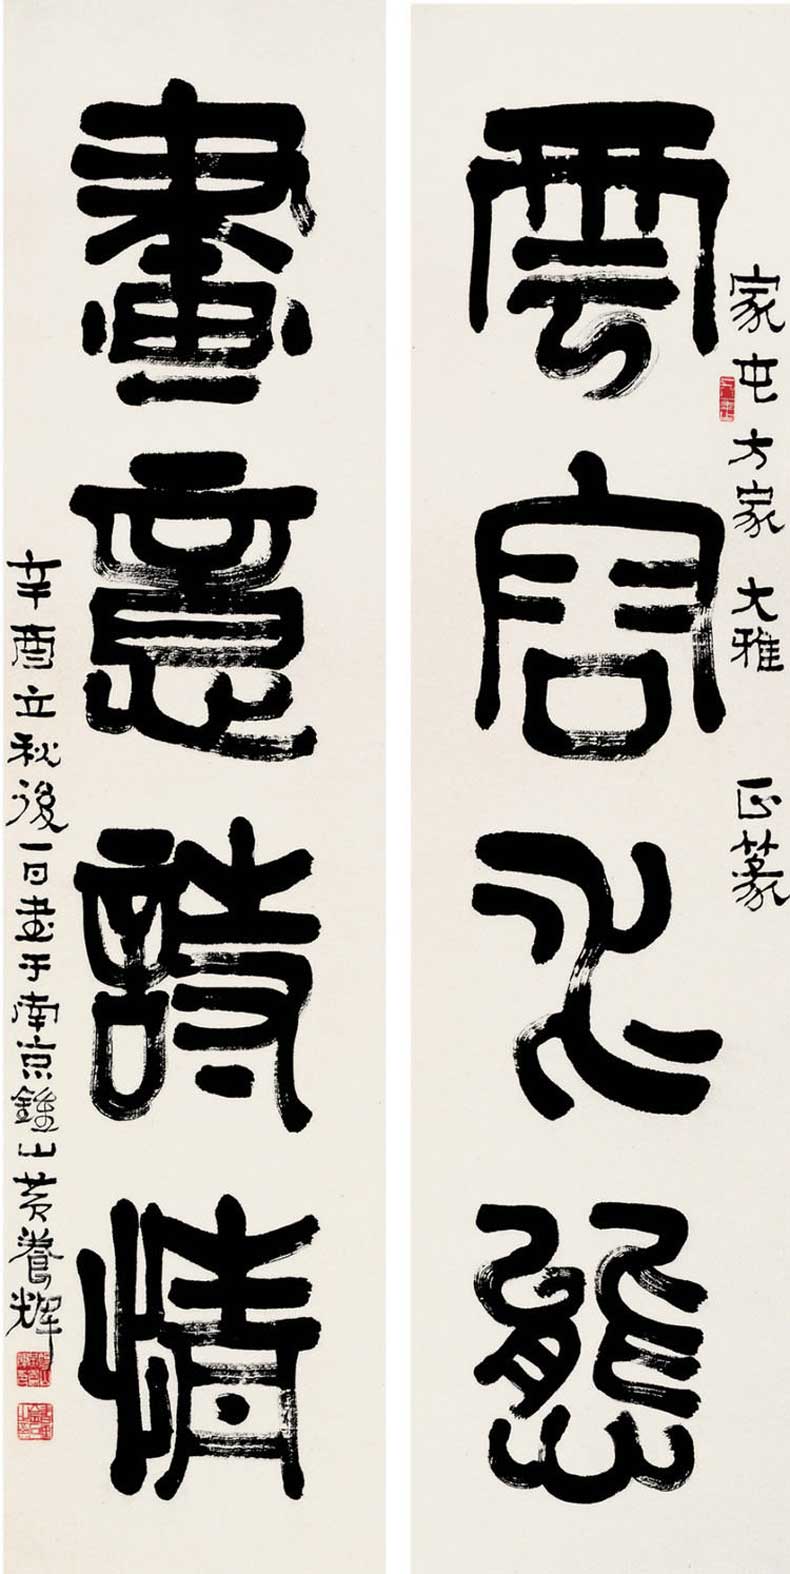 家屯方家大雅正篆
雲容水態
畫意詩情
辛酉立秋後一日書于南京鍾山黃養輝